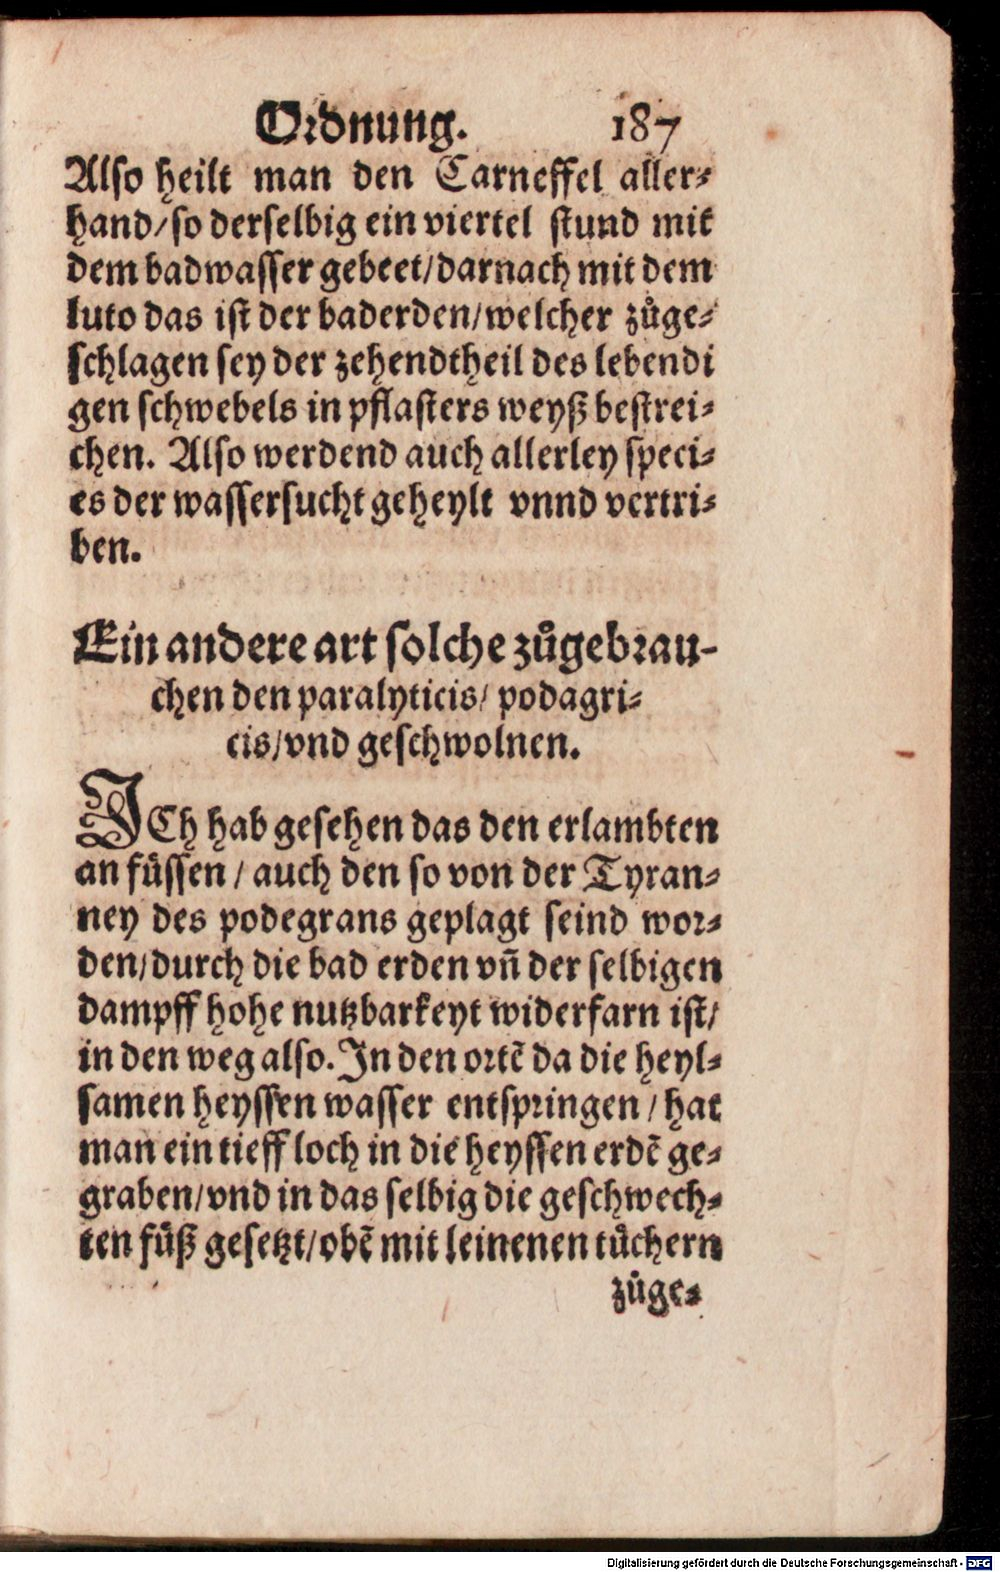 Ordnung. 187
Also heilt man den Carneffel aller⸗
hand/so derselbig ein viertel stund mit
dem badwasser gebeet/darnach mit dem
luto das ist der baderden/welcher zůge⸗
schlagen sey der zehendtheil des lebendi
gen schwebels in pflasters weyß bestrei⸗
chen. Also werdend auch allerley speci⸗
es der wassersucht geheylt vnnd vertri⸗
ben.
Ein andere art solche zůgebrau-
chen den paralyticis/ podagri⸗
cis/vnd geschwolnen.
ICh hab gesehen das den erlambten
an fůssen / auch den so von der Tyran⸗
ney des podegrans geplagt seind wor⸗
den/durch die bad erden vñ der selbigen
dampff hohe nutzbarkeyt widerfarn ist/
in den weg also. In den ortẽ da die heyl⸗
samen heyssen wasser entspringen / hat
man ein tieff loch in die heyssen erdẽ ge⸗
graben/vnd in das selbig die geschwech⸗
ten fůß gesetzt/obẽ mit leinenen tůchern
zůge⸗
Digitalisierung gefördert durch die Deutsche Forschungsgemeinschaft - DFG